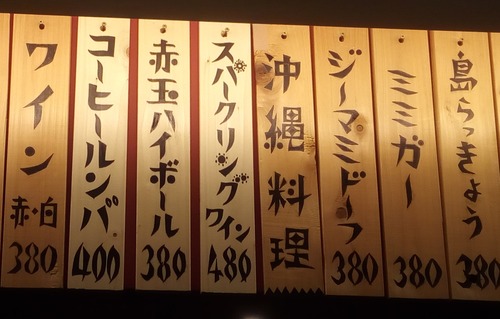 ワイン
赤・白
380
コーヒールンバ
400
赤玉ハイボール
380
スパークリングワイン
480
沖縄料理
ジーマミドーフ
380
ミミガー
380
島らっきょう
380